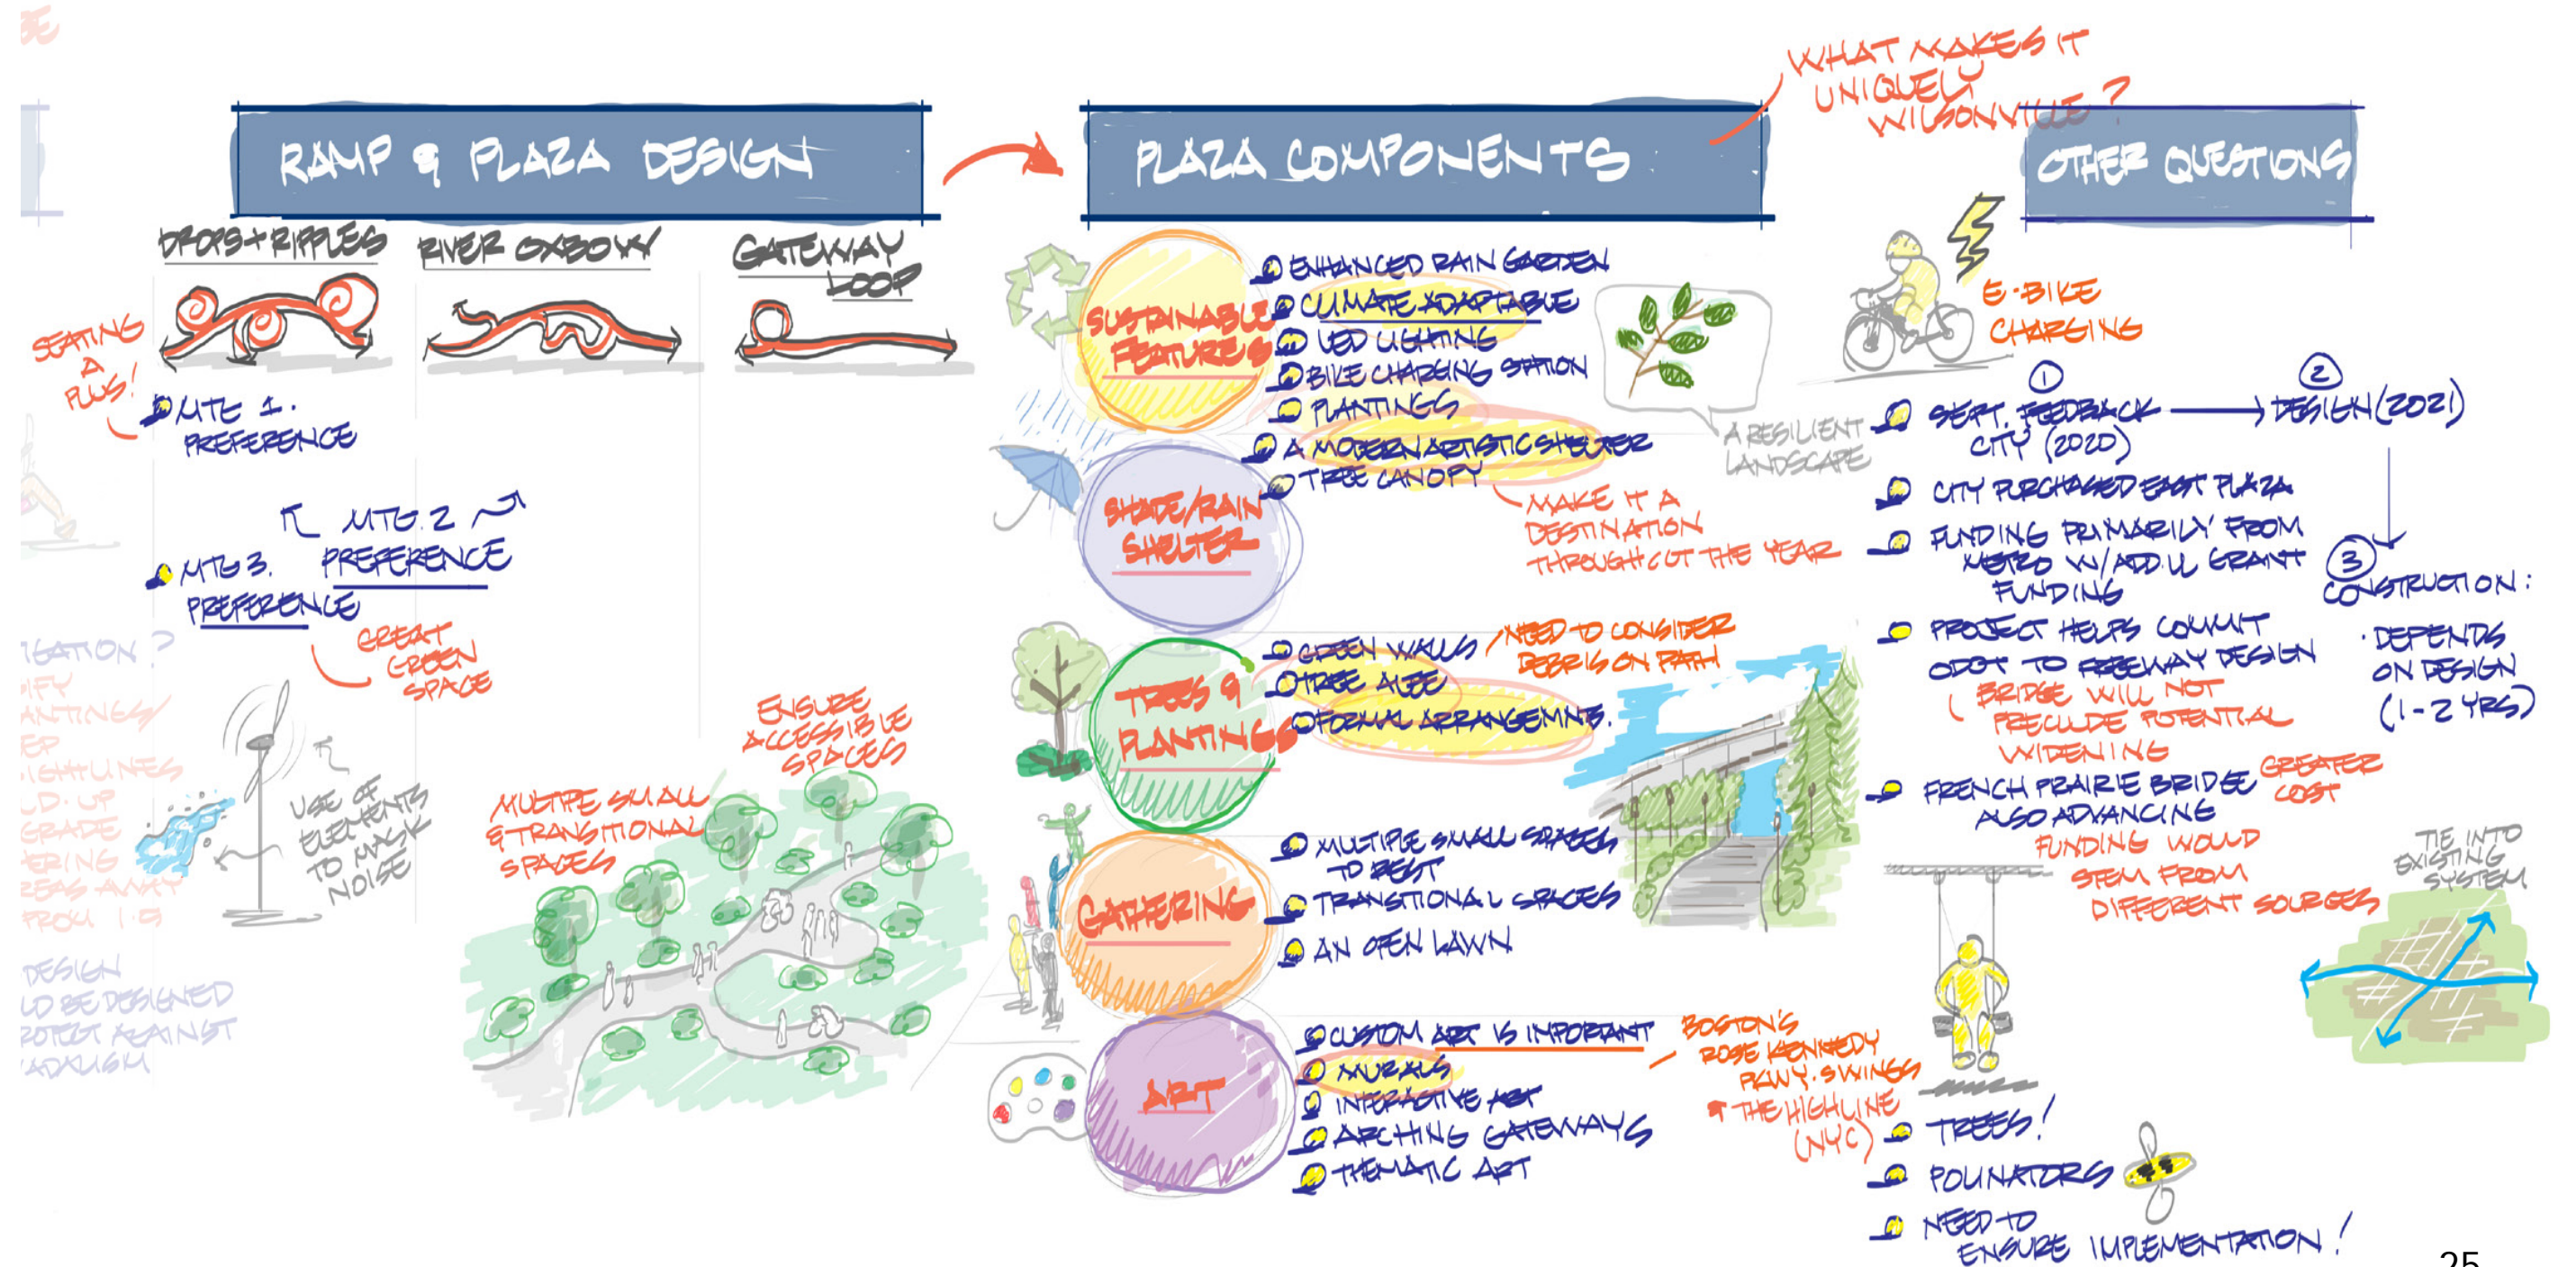 RAMP & PLAZA DESIGN
DROPS + RIPPLES
RIVER OXBOW
GATEWAY
LOOP
SEATING
A
PLUS!
MTG 1.
PREFERENCE
MTG. 2
PREFERENCE
MTG 3.
PREFERENCE
GREAT
GREEN
SPACE
USE OF
ELEMENTS
TO MASK
NOISE
MULTIPE SMALL
& TRANSITIONAL
SPACES
ENSURE
ACCESSIBLE
SPACES
DESIGN
LD BE DESIGNED
ROTECT AGAINST
ADALISM
IGATION?
IFY
ANTINGS/
EP
IGHTLINES
LD. UP
GRADE
ERING
REAS AWAY
FROM I-5
BE
PLAZA COMPONENTS
WHAT MAKES IT
UNIQUELY
WILSONVILLE?
SUSTAINABLE
FEATURES
ENHANCED RAIN GARDEN
CLIMATE ADAPTABLE
LED LIGHTING
BIKE CHARGING STATION
PLANTINGS
A RESILIENT
LANDSCAPE
SHADE/RAIN
SHELTER
A MODERN ARTISTIC SHELTER
TREE CANOPY
MAKE IT A
DESTINATION
THROUGHOUT THE YEAR
TREES &
PLANTINGS
GREEN WALLS
TREE ALEE
FORMAL ARRANGEMNTS.
NEED TO CONSIDER
DEBRIS ON PATH
GATHERING
MULTIPLE SMALL SPACES
TO REST
TRANSITIONAL SPACES
AN OPEN LAWN
ART
CUSTOM ART IS IMPORTANT
MURALS
INTERACTIVE ART
ARCHING GATEWAYS
THEMATIC ART
BOSTON'S
ROSE KENNEDY
PKWY. SWINGS
THE HIGHLINE
(NYC)
OTHER QUESTIONS
E-BIKE
CHARGING
1
SEPT. FEEDBACK
CITY (2020)
2
DESIGN (2021)
3
CONSTRUCTION:
· DEPENDS
ON DESIGN
(1-2 YRS)
CITY PURCHASED EAST PLAZA
FUNDING PRIMARILY FROM
METRO W/ADD'L GRANT
FUNDING
PROJECT HELPS COMMIT
ODOT TO FREEWAY DESIGN
BRIDGE WILL NOT
PRECLUDE POTENTIAL
WIDENING
FRENCH PRAIRIE BRIDGE
ALSO ADVANCING
GREATER
COST
FUNDING WOULD
STEM FROM
DIFFERENT SOURCES
TIE INTO
EXISTING
SYSTEM
TREES!
POLINATORS
NEED TO
ENSURE IMPLEMENTATION!
25